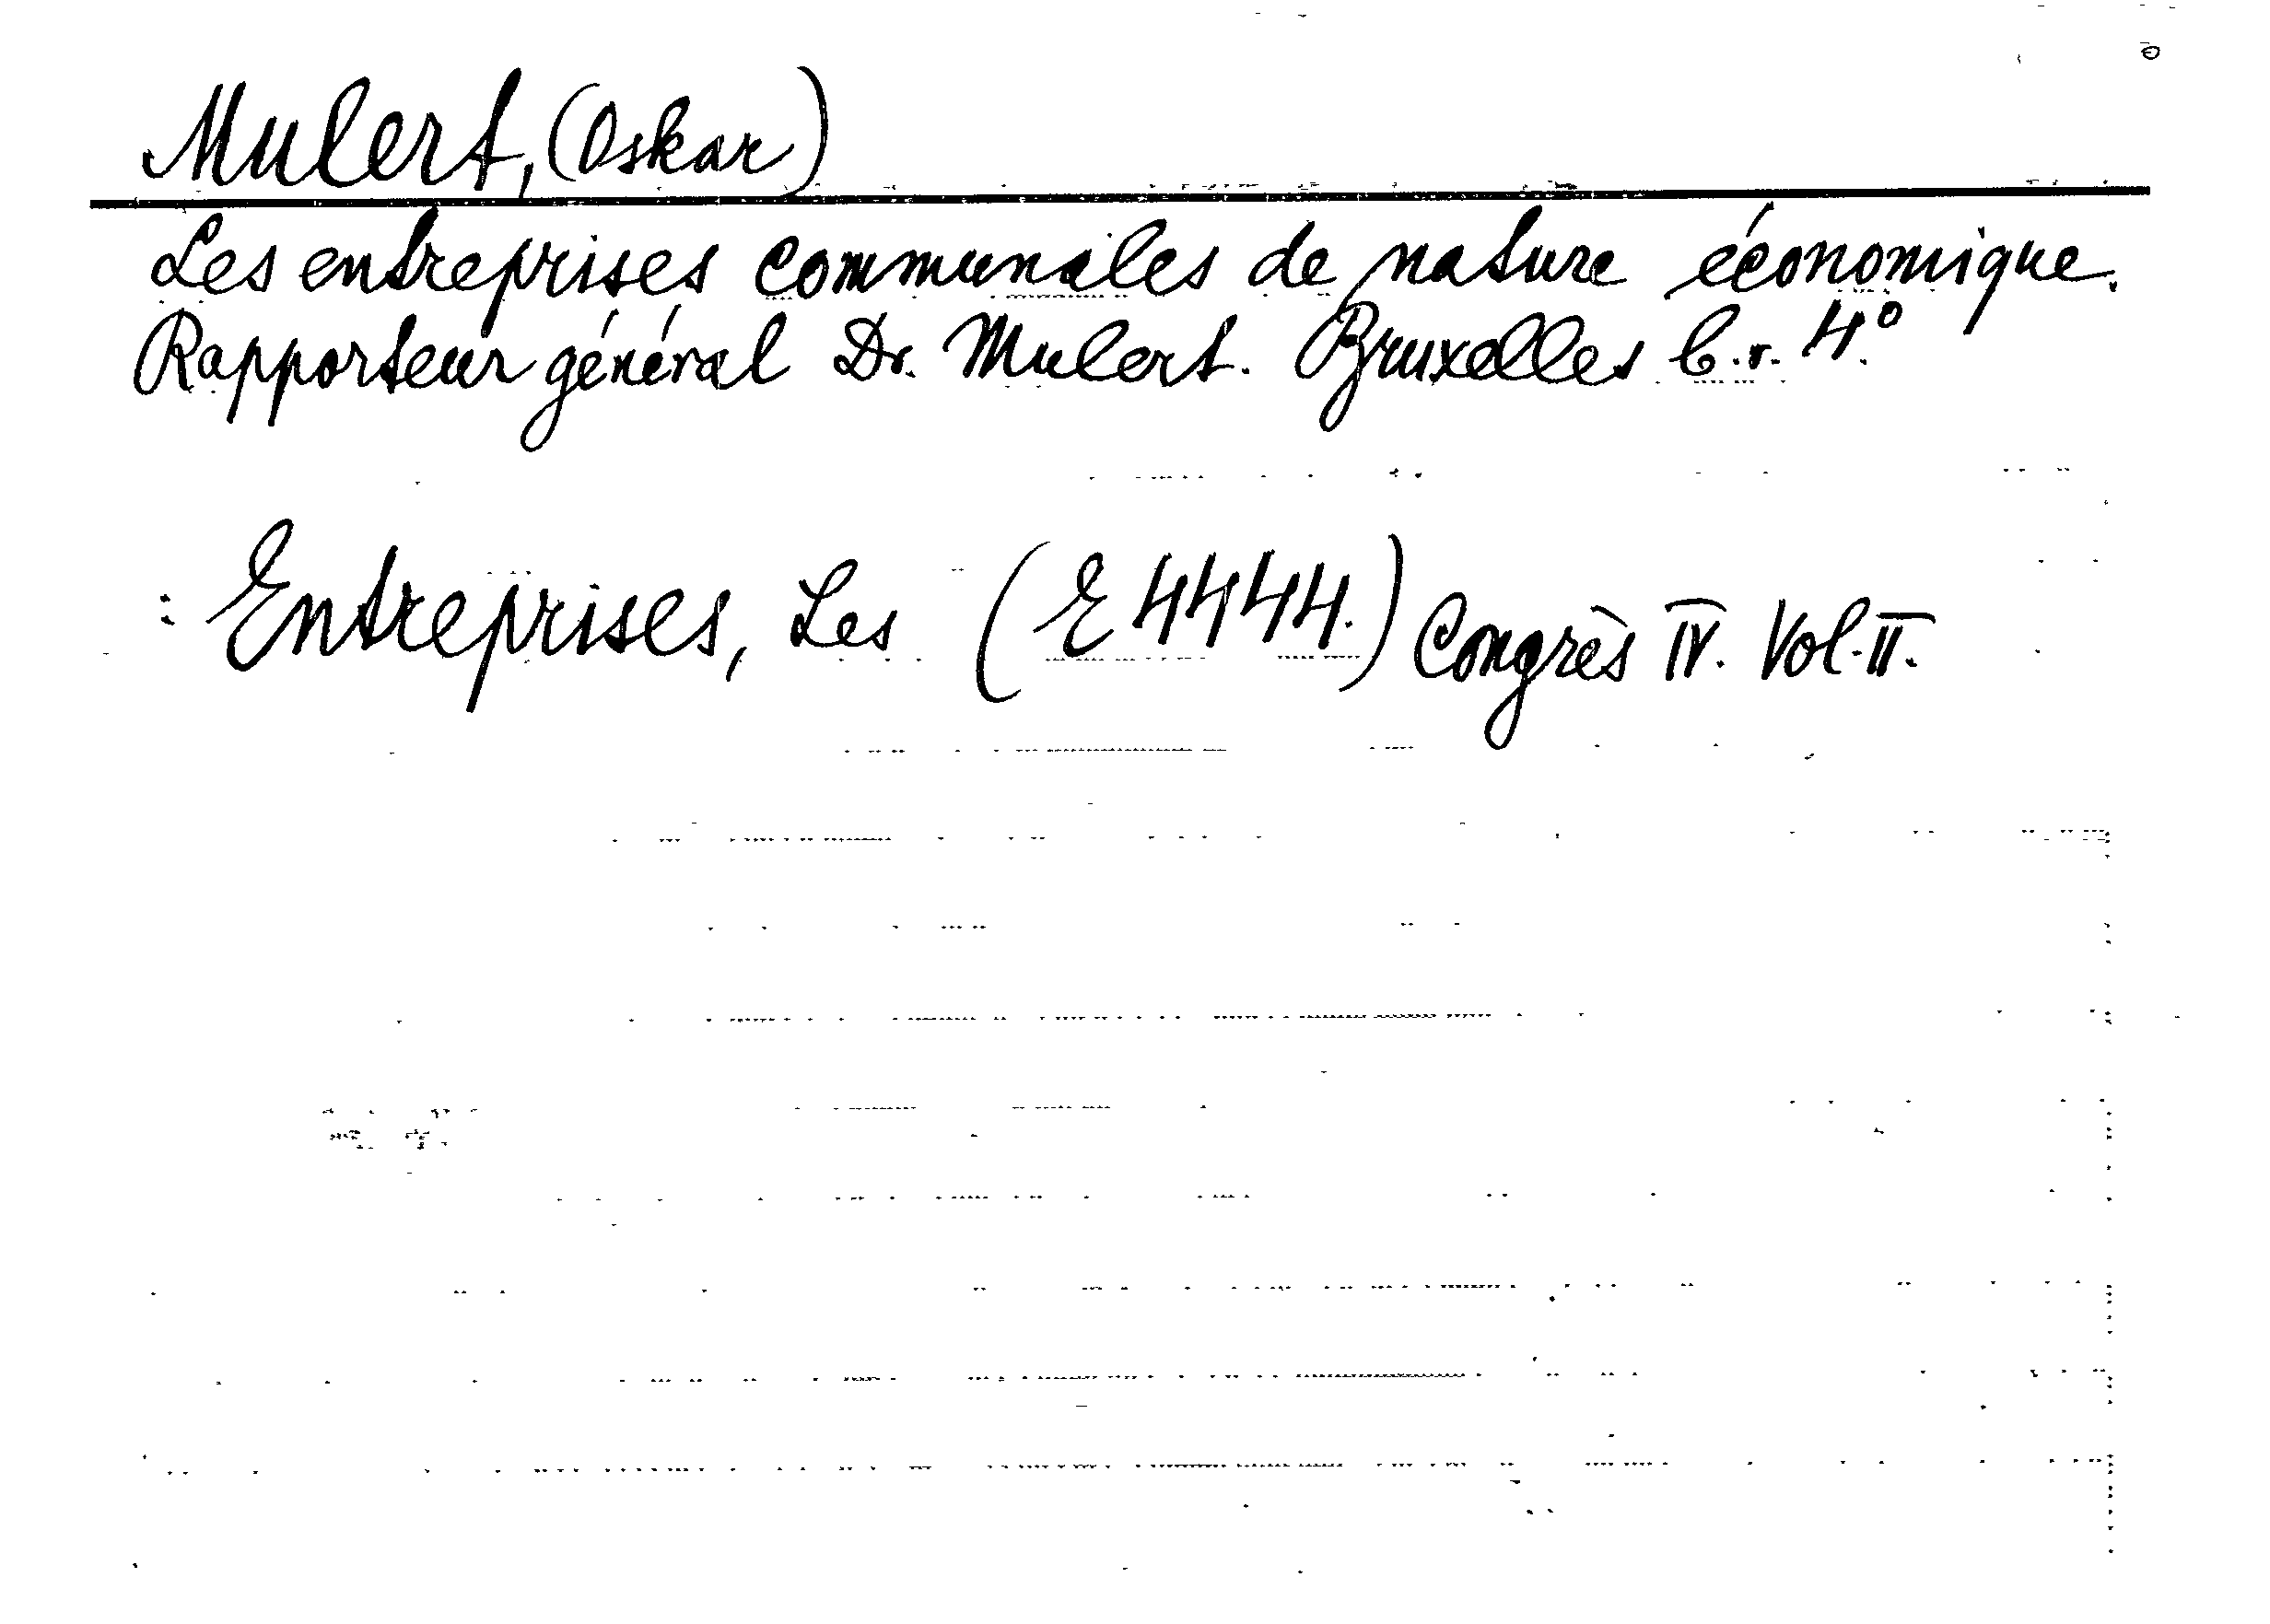 Mulert, (Oskar)
Les entreprises communales de nature économique.
Rapporteur général Dr. Mulert. Bruxelles 4.º
: Entreprises, Les (E 4444.) Congrès IV. Vol. II.